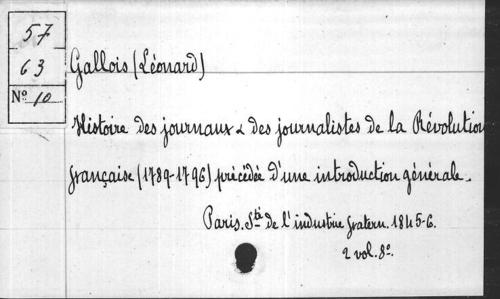 57
63
Nº 10
Gallois (Léonard)
Histoire des journaux & des journalistes de la Révolution
française (1789-1796) précédée d'une introduction générale.
Paris. Sté de l'industrie fratern. 1845-6.
2 vol. 8º.